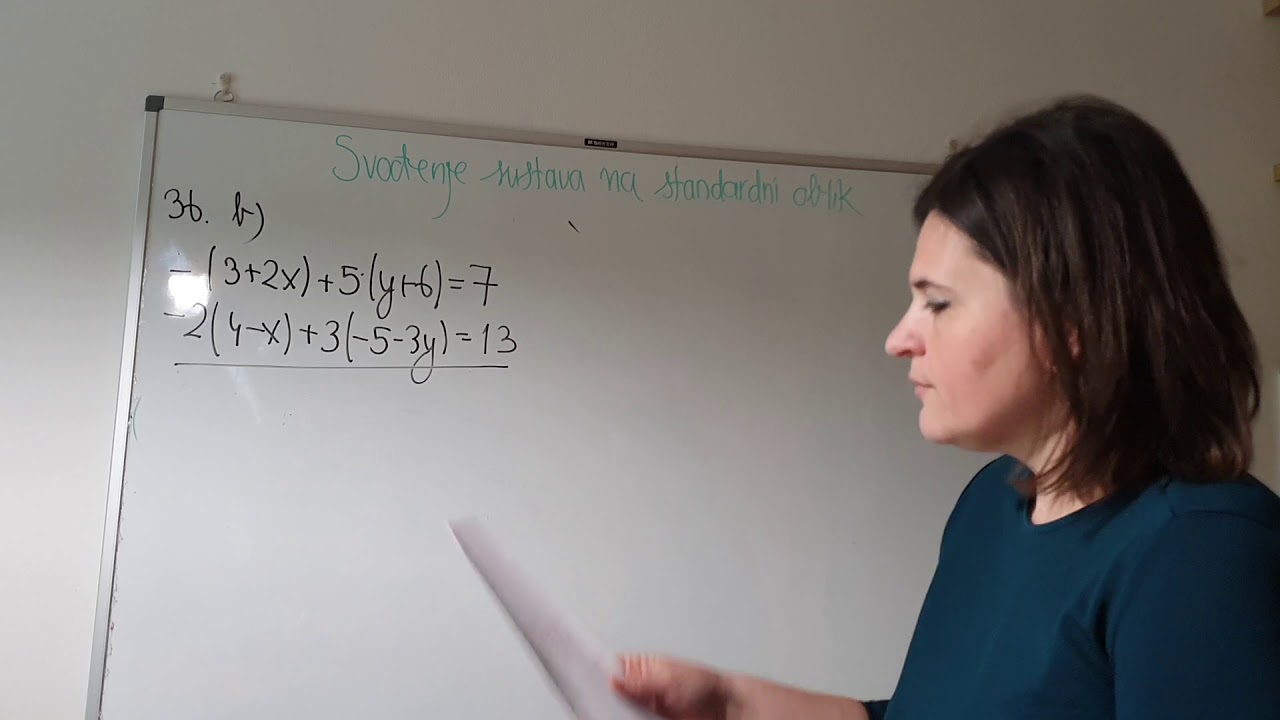 Svođenje sustava na standardni oblik
36. b)
-(3+2x)+5·(y+6)=7
-2(4-x)+3(-5-3y)=13